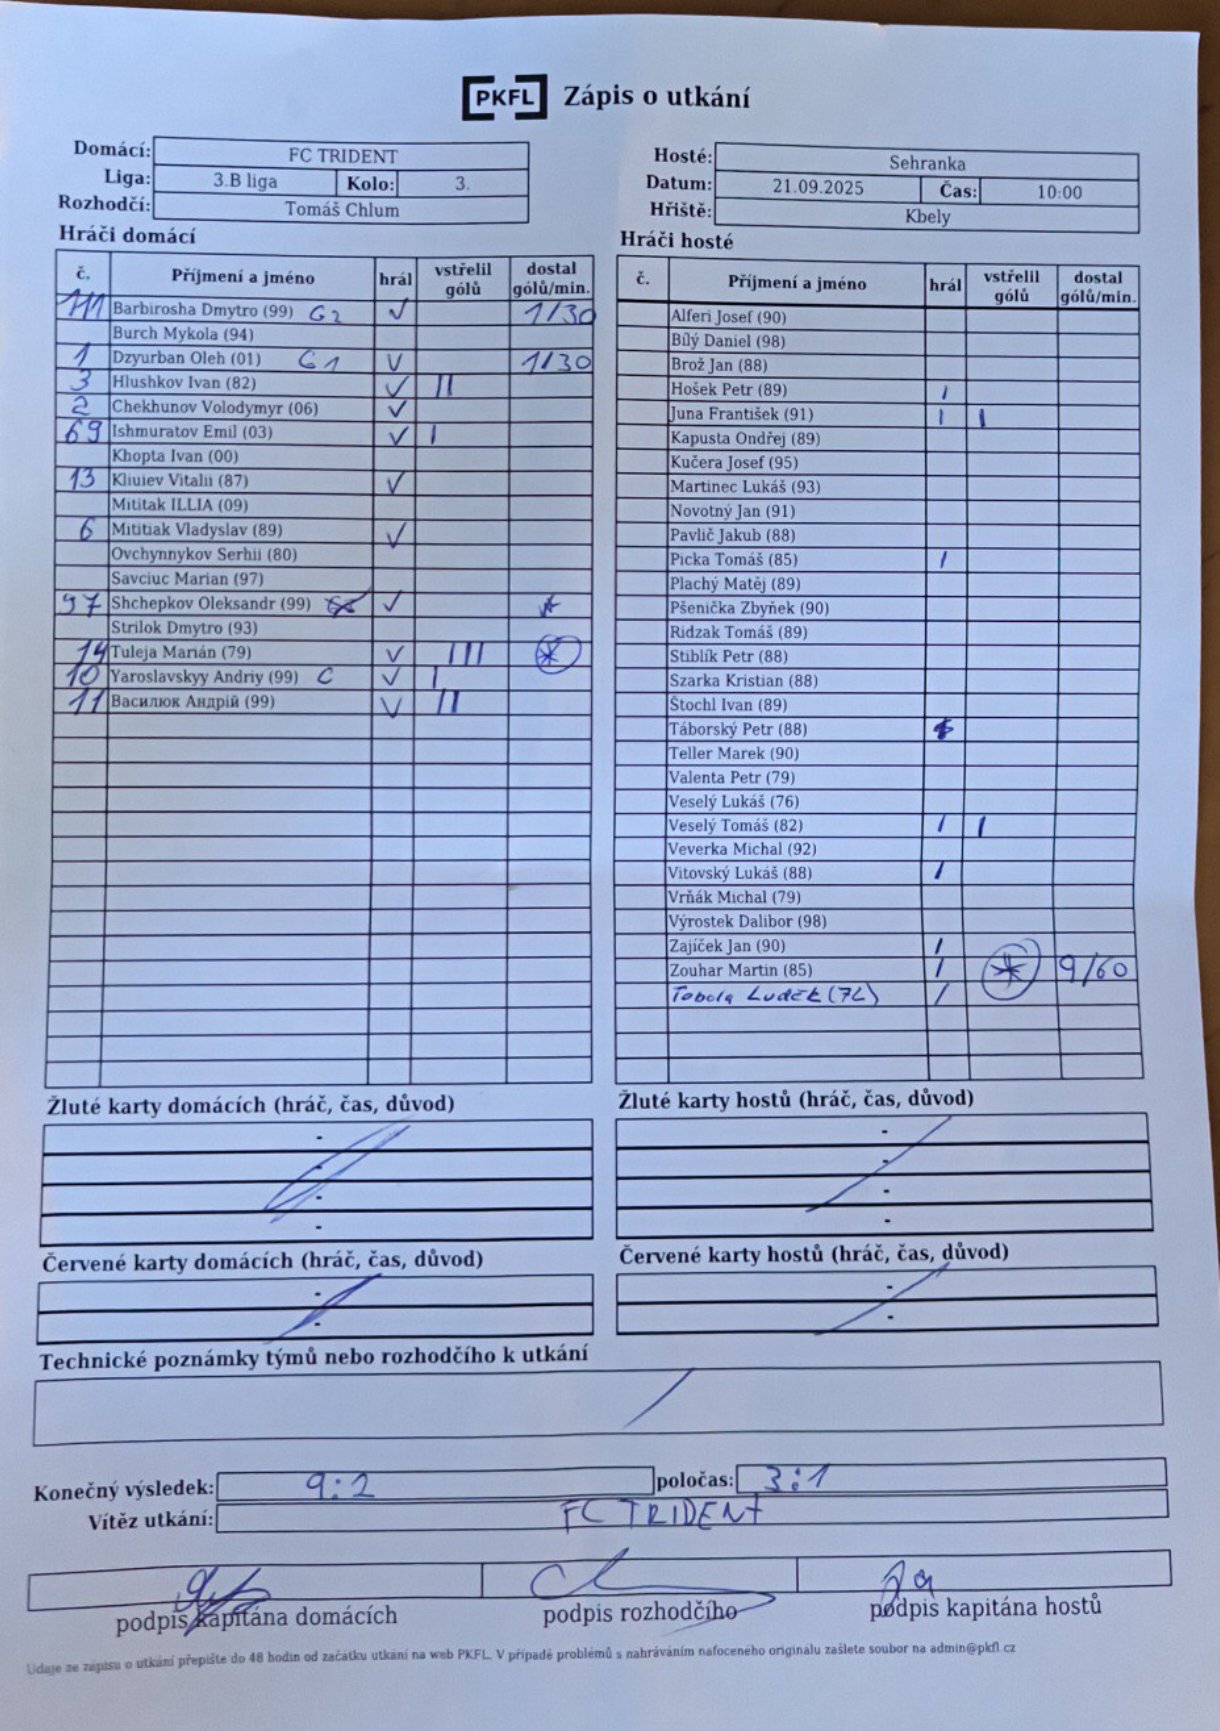 PKFL Zápis o utkání
Domácí: FC TRIDENT
Liga: 3.B liga Kolo: 3.
Rozhodčí: Tomáš Chlum
Hosté: Sehranka
Datum: 21.09.2025 Čas: 10:00
Hřiště: Kbely
Hráči domácí
č. Příjmení a jméno hrál vstřelil gólů dostal gólů/min.
111 Barbirosha Dmytro (99) G2 V 1/30
Burch Mykola (94)
1 Dzyurban Oleh (01) G1 V 1/30
3 Hlushkov Ivan (82) V II
2 Chekhunov Volodymyr (06) V
69 Ishmuratov Emil (03) V I
Khopta Ivan (00)
13 Kliuiev Vitalii (87) V
Mititak ILLIA (09)
6 Mititiak Vladyslav (89) V
Ovchynnykov Serhii (80)
Savciuc Marian (97)
97 Shchepkov Oleksandr (99) V
Strilok Dmytro (93)
14 Tuleja Marián (79) V III *
10 Yaroslavskyy Andriy (99) C V I
11 Василюк Андрій (99) V II
Hráči hosté
č. Příjmení a jméno hrál vstřelil gólů dostal gólů/min.
Alferi Josef (90)
Bílý Daniel (98)
Brož Jan (88)
Hošek Petr (89) I
Juna František (91) I I
Kapusta Ondřej (89)
Kučera Josef (95)
Martinec Lukáš (93)
Novotný Jan (91)
Pavlič Jakub (88)
Picka Tomáš (85) I
Plachý Matěj (89)
Pšenička Zbyňek (90)
Ridzak Tomáš (89)
Stiblík Petr (88)
Szarka Kristian (88)
Štochl Ivan (89)
Táborský Petr (88)
Teller Marek (90)
Valenta Petr (79)
Veselý Lukáš (76)
Veselý Tomáš (82) I I
Veverka Michal (92)
Vitovský Lukáš (88) I
Vrňák Michal (79)
Výrostek Dalibor (98)
Zajíček Jan (90) I
Zouhar Martin (85) I * 9/60
Tobola Luděk I
Žluté karty domácích (hráč, čas, důvod)
-
-
-
-
Žluté karty hostů (hráč, čas, důvod)
-
-
-
-
Červené karty domácích (hráč, čas, důvod)
-
-
Červené karty hostů (hráč, čas, důvod)
-
-
Technické poznámky týmů nebo rozhodčího k utkání
Konečný výsledek: 9:2 poločas: 3:1
Vítěz utkání: FC TRIDENT
podpis kapitána domácích podpis rozhodčího podpis kapitána hostů
Údaje ze zápisu o utkání přepište do 48 hodin od začátku utkání na web PKFL. V případě problémů s nahráváním nafoceného originálu zašlete soubor na admin@pkfl.cz